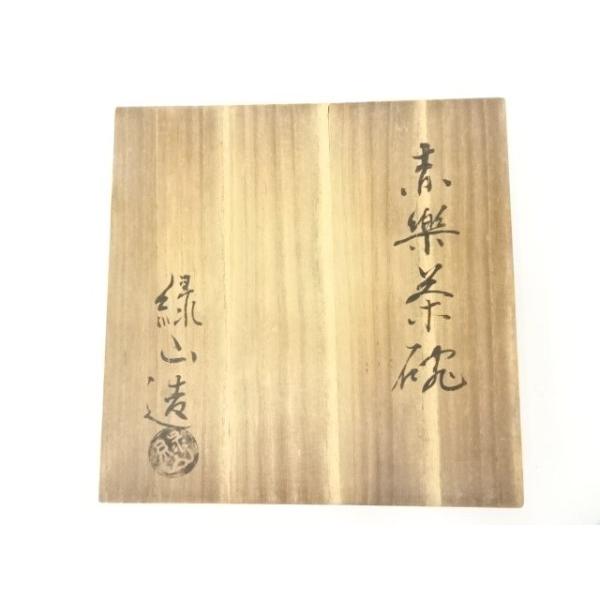 赤樂茶碗
緑山造